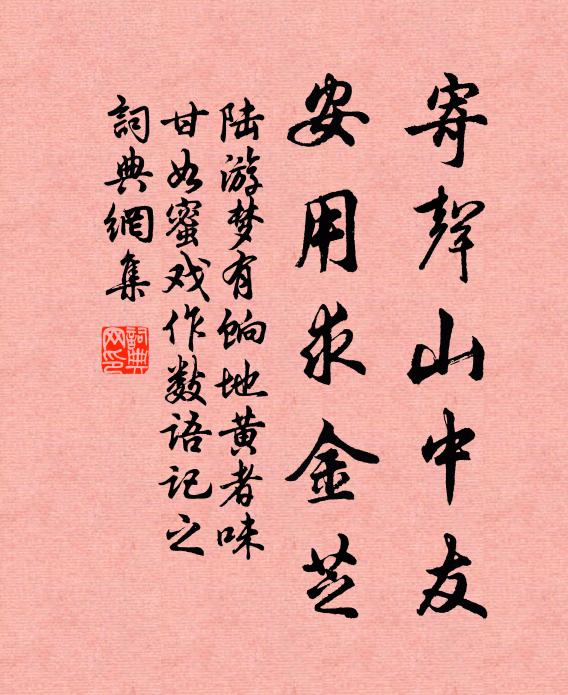 寄聲山中友
安用求金芝
陆游梦有饷地黄者味
甘如蜜戏作数语记之
詞典網集
詞典網印